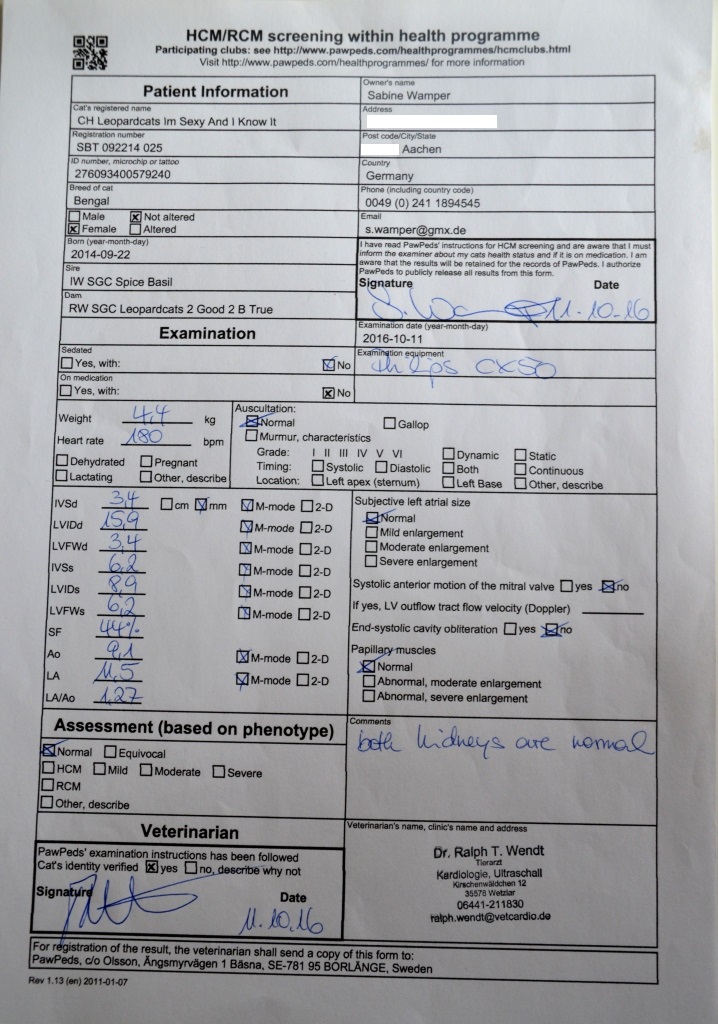 HCM/RCM screening within health programme
Participating clubs: see http://www.pawpeds.com/healthprogrammes/hcmclubs.html
Visit http://www.pawpeds.com/healthprogrammes/ for more information
Patient Information
Cat's registered name
CH Leopardcats Im Sexy And I Know It
Registration number
SBT 092214 025
ID number, microchip or tattoo
276093400579240
Breed of cat
Bengal
Male Not altered
Female Altered
Born (year-month-day)
2014-09-22
Sire
IW SGC Spice Basil
Dam
RW SGC Leopardcats 2 Good 2 B True
Owner's name
Sabine Wamper
Address
Post code/City/State
Aachen
Country
Germany
Phone (including country code)
0049 (0) 241 1894545
Email
s.wamper@gmx.de
I have read PawPeds' instructions for HCM screening and are aware that I must
inform the examiner about my cats health status and if it is on medication. I am
aware that the results will be retained for the records of PawPeds. I authorize
PawPeds to publicly release all results from this form.
Signature Date
S. Wa 11.10.16
Examination
Sedated
Yes, with: No
On medication
Yes, with: No
Examination date (year-month-day)
2016-10-11
Examination equipment
Philips CX50
Weight 4,4 kg
Heart rate 180 bpm
Dehydrated Pregnant
Lactating Other, describe
Auscultation:
Normal Gallop
Murmur, characteristics
Grade: I II III IV V VI Dynamic Static
Timing: Systolic Diastolic Both Continuous
Location: Left apex (sternum) Left Base Other, describe
IVSd 3,4 cm mm M-mode 2-D
LVIDd 15,9 M-mode 2-D
LVFWd 3,4 M-mode 2-D
IVSs 6,2 M-mode 2-D
LVIDs 8,9 M-mode 2-D
LVFWs 6,2 M-mode 2-D
SF 44%
Ao 9,1 M-mode 2-D
LA 11,5 M-mode 2-D
LA/Ao 1,27
Subjective left atrial size
Normal
Mild enlargement
Moderate enlargement
Severe enlargement
Systolic anterior motion of the mitral valve yes no
If yes, LV outflow tract flow velocity (Doppler)
End-systolic cavity obliteration yes no
Papillary muscles
Normal
Abnormal, moderate enlargement
Abnormal, severe enlargement
Assessment (based on phenotype)
Normal Equivocal
HCM Mild Moderate Severe
RCM
Other, describe
Comments
both kidneys are normal
Veterinarian
PawPeds' examination instructions has been followed
Cat's identity verified yes no, describe why not
Signature Date
11.10.16
Veterinarian's name, clinic's name and address
Dr. Ralph T. Wendt
Tierarzt
Kardiologie, Ultraschall
Kirschenwäldchen 12
35578 Wetzlar
06441-211830
ralph.wendt@vetcardio.de
For registration of the result, the veterinarian shall send a copy of this form to:
PawPeds, c/o Olsson, Ängsmyrvägen 1 Bäsna, SE-781 95 BORLÄNGE, Sweden
Rev 1.13 (en) 2011-01-07